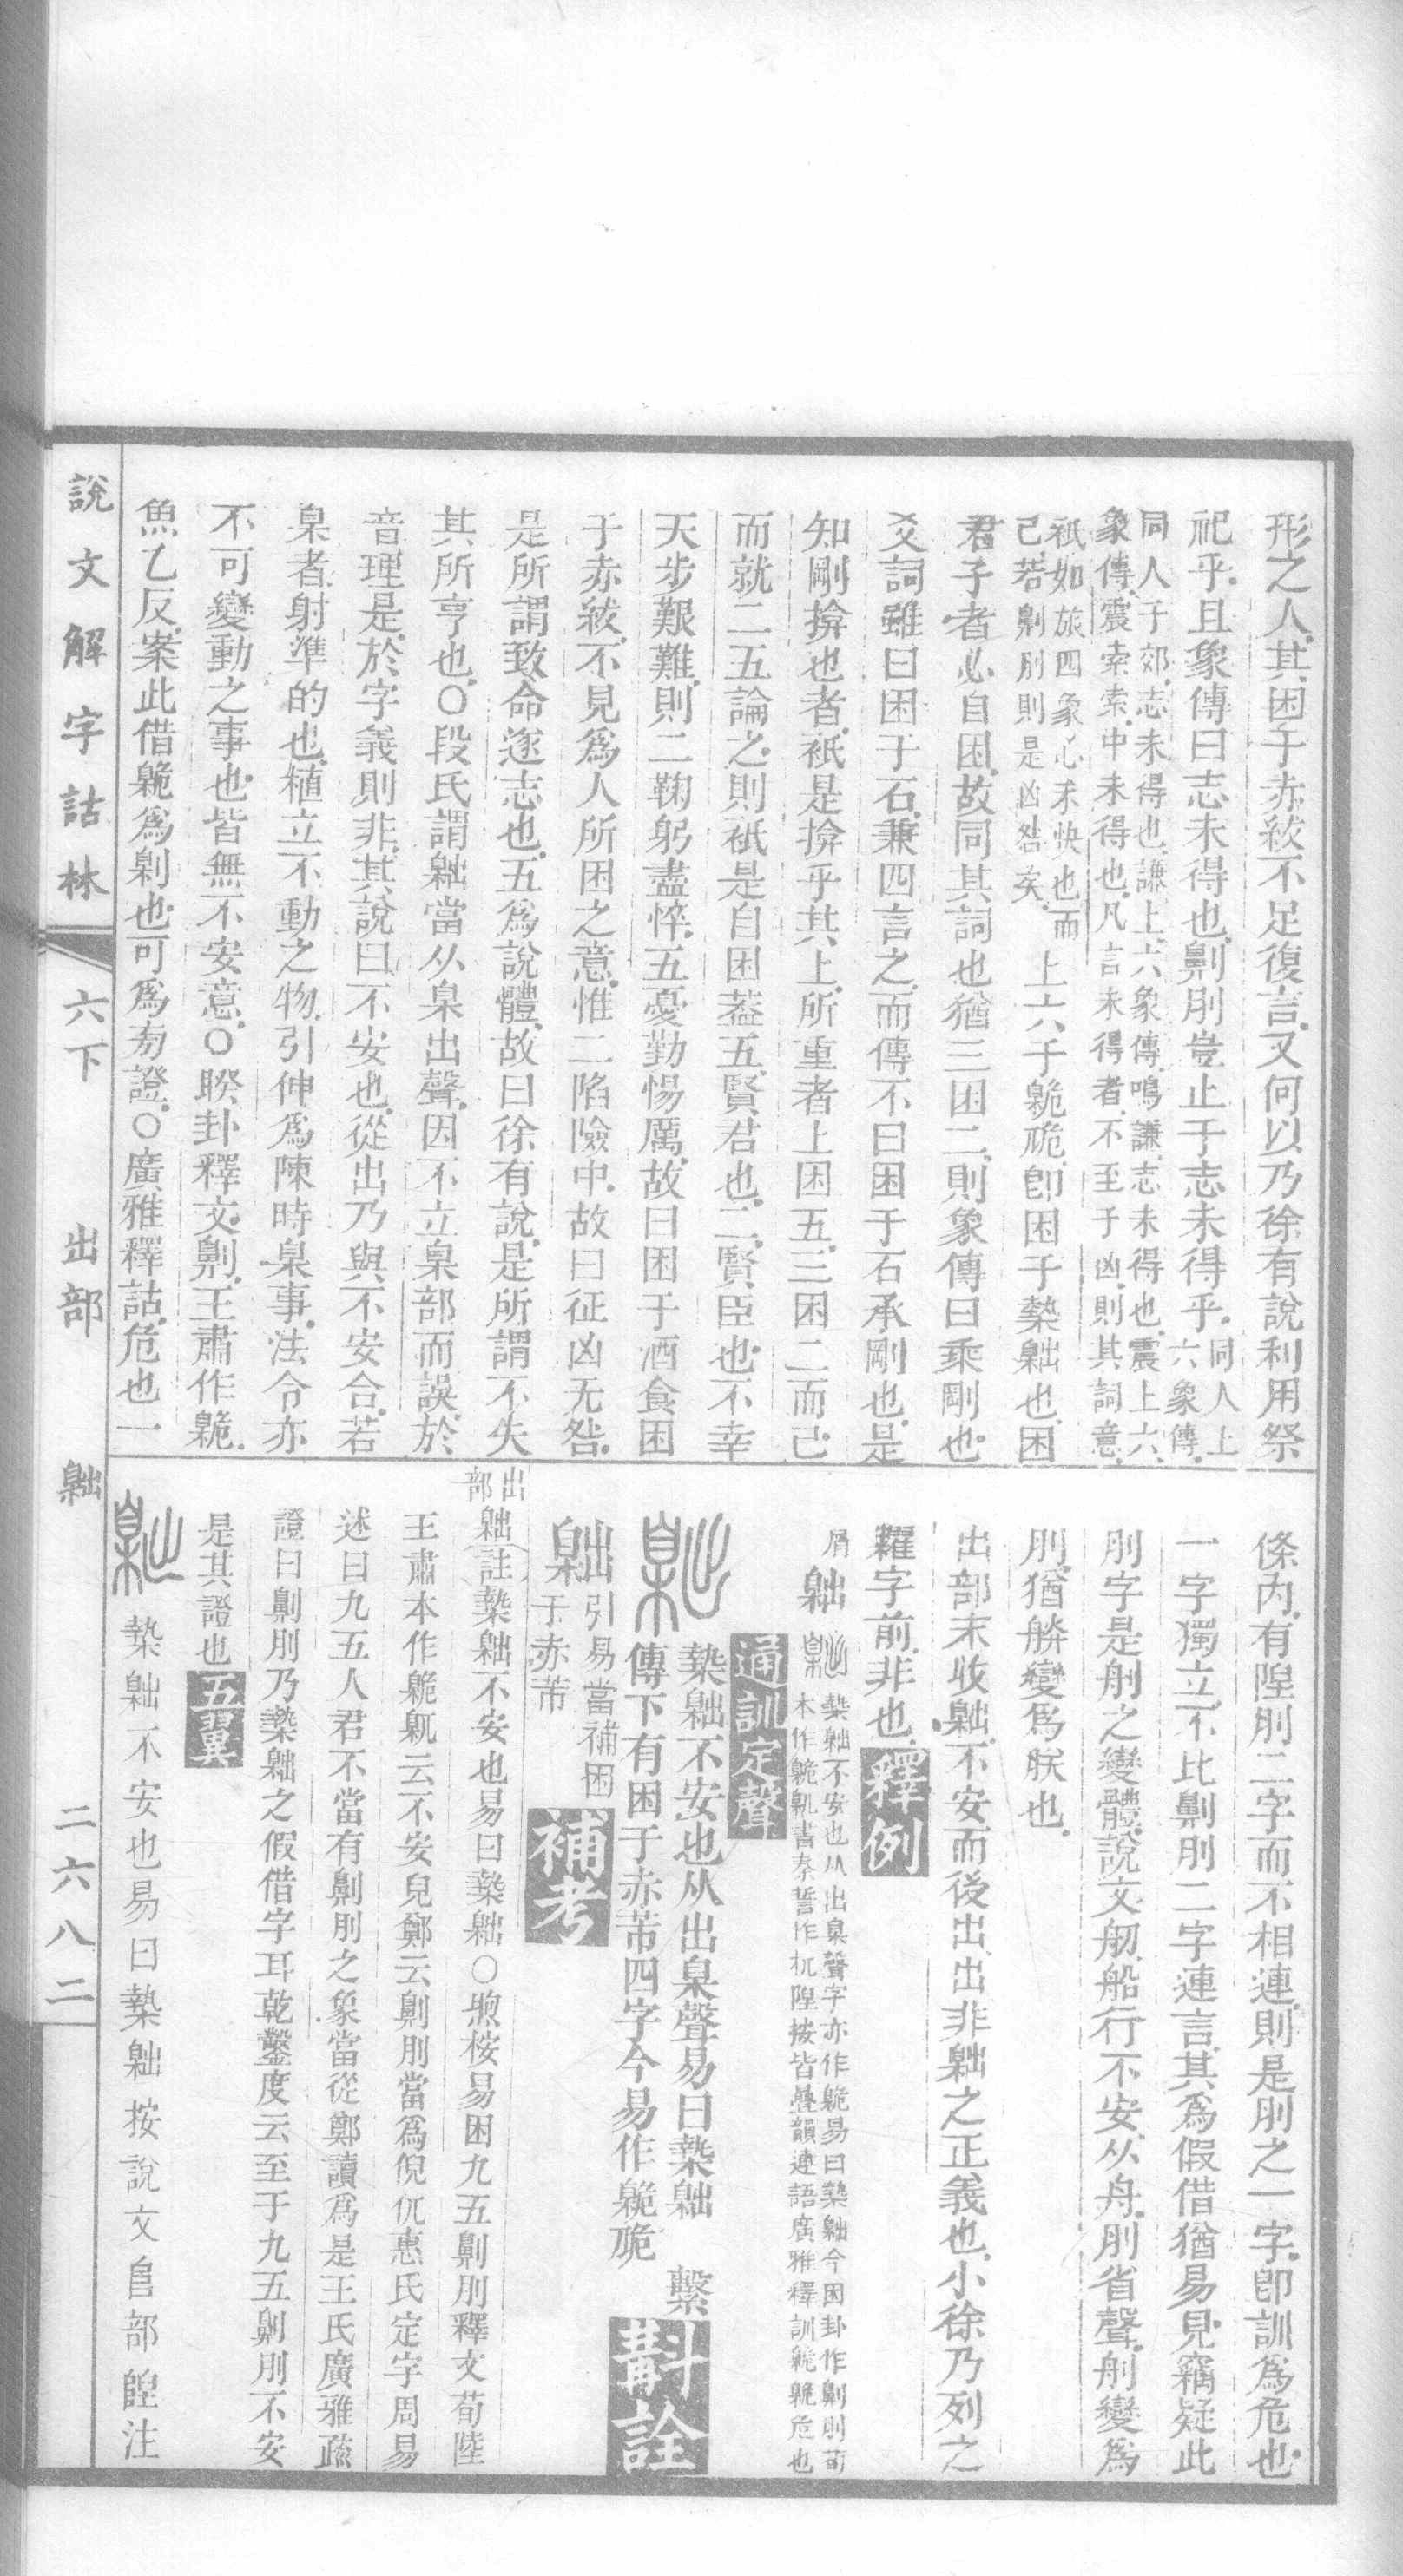 形之人其困于赤紱不足復言又何以乃徐有說利用祭
祀乎且象傳曰志未得也劓刖豈止于志未得乎同人上六象傳
同人于郊志未得也謙上六象傳鳴謙志未得也震上六
象傳震索索中未得也凡言未得者不至于凶則其詞意
祇如旅四象心未快也而
己若劓刖則是凶咎矣上六于臲卼卽困于槷䵳也困
君子者必自困故同其詞也猶三困二則象傳曰乘剛也
爻詞雖曰困于石兼四言之而傳不曰困于石承剛也是
知剛揜也者祇是揜乎其上所重者上困五三困二而己
而就二五論之則祇是自困葢五賢君也二賢臣也不幸
天步艱難則二鞠躬盡悴五憂勤惕厲故曰困于酒食困
于赤紱不見爲人所困之意惟二陷險中故曰征凶无咎
是所謂致命遂志也五爲說體故曰徐有說是所謂不失
其所亨也○段氏謂䵳當从臬出聲因不立臬部而誤於
音理是於字義則非其說曰不安也從出乃與不安合若
臬者射準的也植立不動之物引伸爲陳時臬事法令亦
不可變動之事也皆無不安意○睽卦釋文劓王肅作臲
魚乙反案此借臲爲劓也可爲㫄證○廣雅釋詁危也一
條內有陧刖二字而不相連則是刖之一字卽訓爲危也
一字獨立不比劓刖二字連言其爲假借猶易見竊疑此
刖字是䑔之變體說文舠船行不安从舟刖省聲䑔變爲
刖猶艈變爲朕也
出部末收䵳不安而後出出非䵳之正義也小徐乃列之
糶字前非也釋例
屑䵳槷䵳不安也从出臬聲字亦作臲易曰槷䵳今困卦作劓刖荀
本作臲卼書泰誓作杌陧按皆疊韻連語廣雅釋訓臲臲危也
通訓定聲
槷䵳不安也从出臬聲易曰槷䵳繫
傳下有困于赤芾四字今易作臲卼斠詮
䵳引易當補困
于赤芾補考
出部䵳(註)槷䵳不安也易曰槷䵳○煦桉易困九五劓刖釋文荀陸
王肅本作臲卼云不安皃鄭云劓刖當爲倪㐳惠氏定字周易
述曰九五人君不當有劓刖之象當從鄭讀爲是王氏廣雅疏
證曰劓刖乃槷䵳之假借字耳乾鑿度云至于九五劓刖不安
是其證也五翼
槷䵳不安也易曰槷䵳按說文𨸏部隉注
說文解字詁林 六下 出部 䵳 二六八二